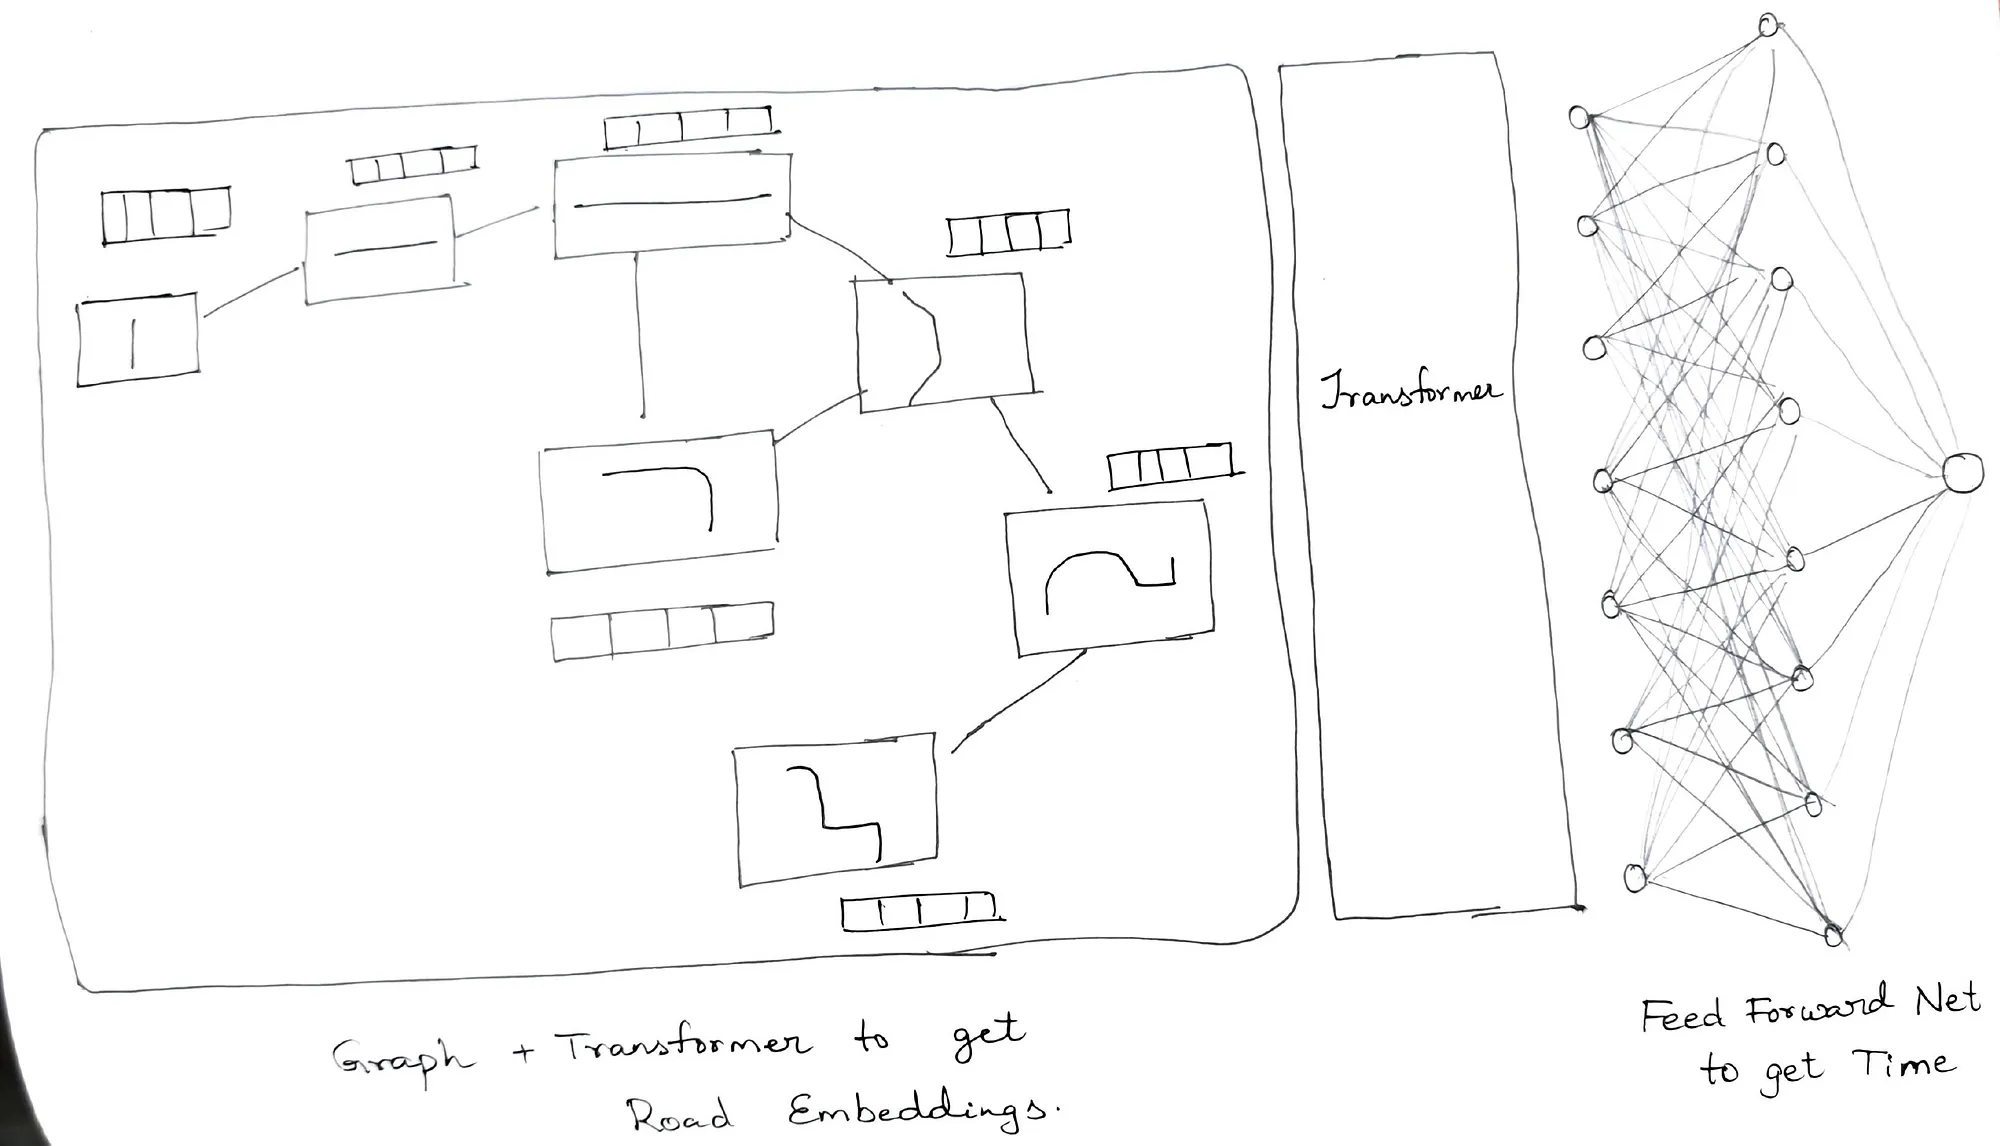 Transformer
Graph + Transformer to get
Road Embeddings.
Feed Forward Net
to get Time